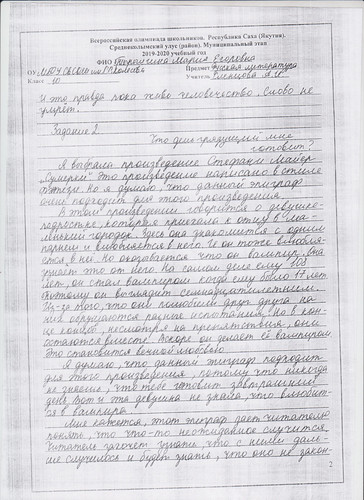 Всероссийская олимпиада школьников. Республика Саха (Якутия).
Среднеколымский улус (район). Муниципальный этап
2019-2020 учебный год
ФИО Мария Егоровна
ОУ МБОУ СКСОШ им Предмет Русская литература
Класс 10 Учитель Слепцова А.И.
И это правда пока живо человечество, слово не
умрёт.
Задание 2.
Что день грядущий мне
готовит?
Я выбрала произведение Стефани Майер
"Сумерки" Это произведение написано в стиле
фэнтези. Но я думаю, что данный эпиграф
очень подходит для этого произведения.
В этом произведении говорится о девушке-
подростке, которая приехала к отцу в ма-
ленький городок. Здесь она знакомится с одним
парнем и влюбляется в него. И он тоже влюбля-
ется в неё. Но оказывается что он вампир. Она
узнаёт это от него. На самом деле ему 108
лет, он стал вампиром когда ему было 17 лет.
Поэтому он выглядит семнадцатилетним.
Из-за того, что они полюбили друг друга на
них обрушаются разные испытания, но в кон-
це концов, несмотря на препятствия, они
остаются вместе. Вскоре он делает её вампиром.
Это становится вечной любовью.
Я думаю, что данный эпиграф подходит
для этого произведения, потому что никогда
не знаешь, что тебе готовит завтрашний
день. Вот и эта девушка не знала, что влюбит-
ся в вампира.
Мне кажется, этот эпиграф даёт читателю
понять, что что-то неожиданное случится.
Читатель захочет узнать, что с ними даль-
ше случилось и будет знать, что оно не закон-
2